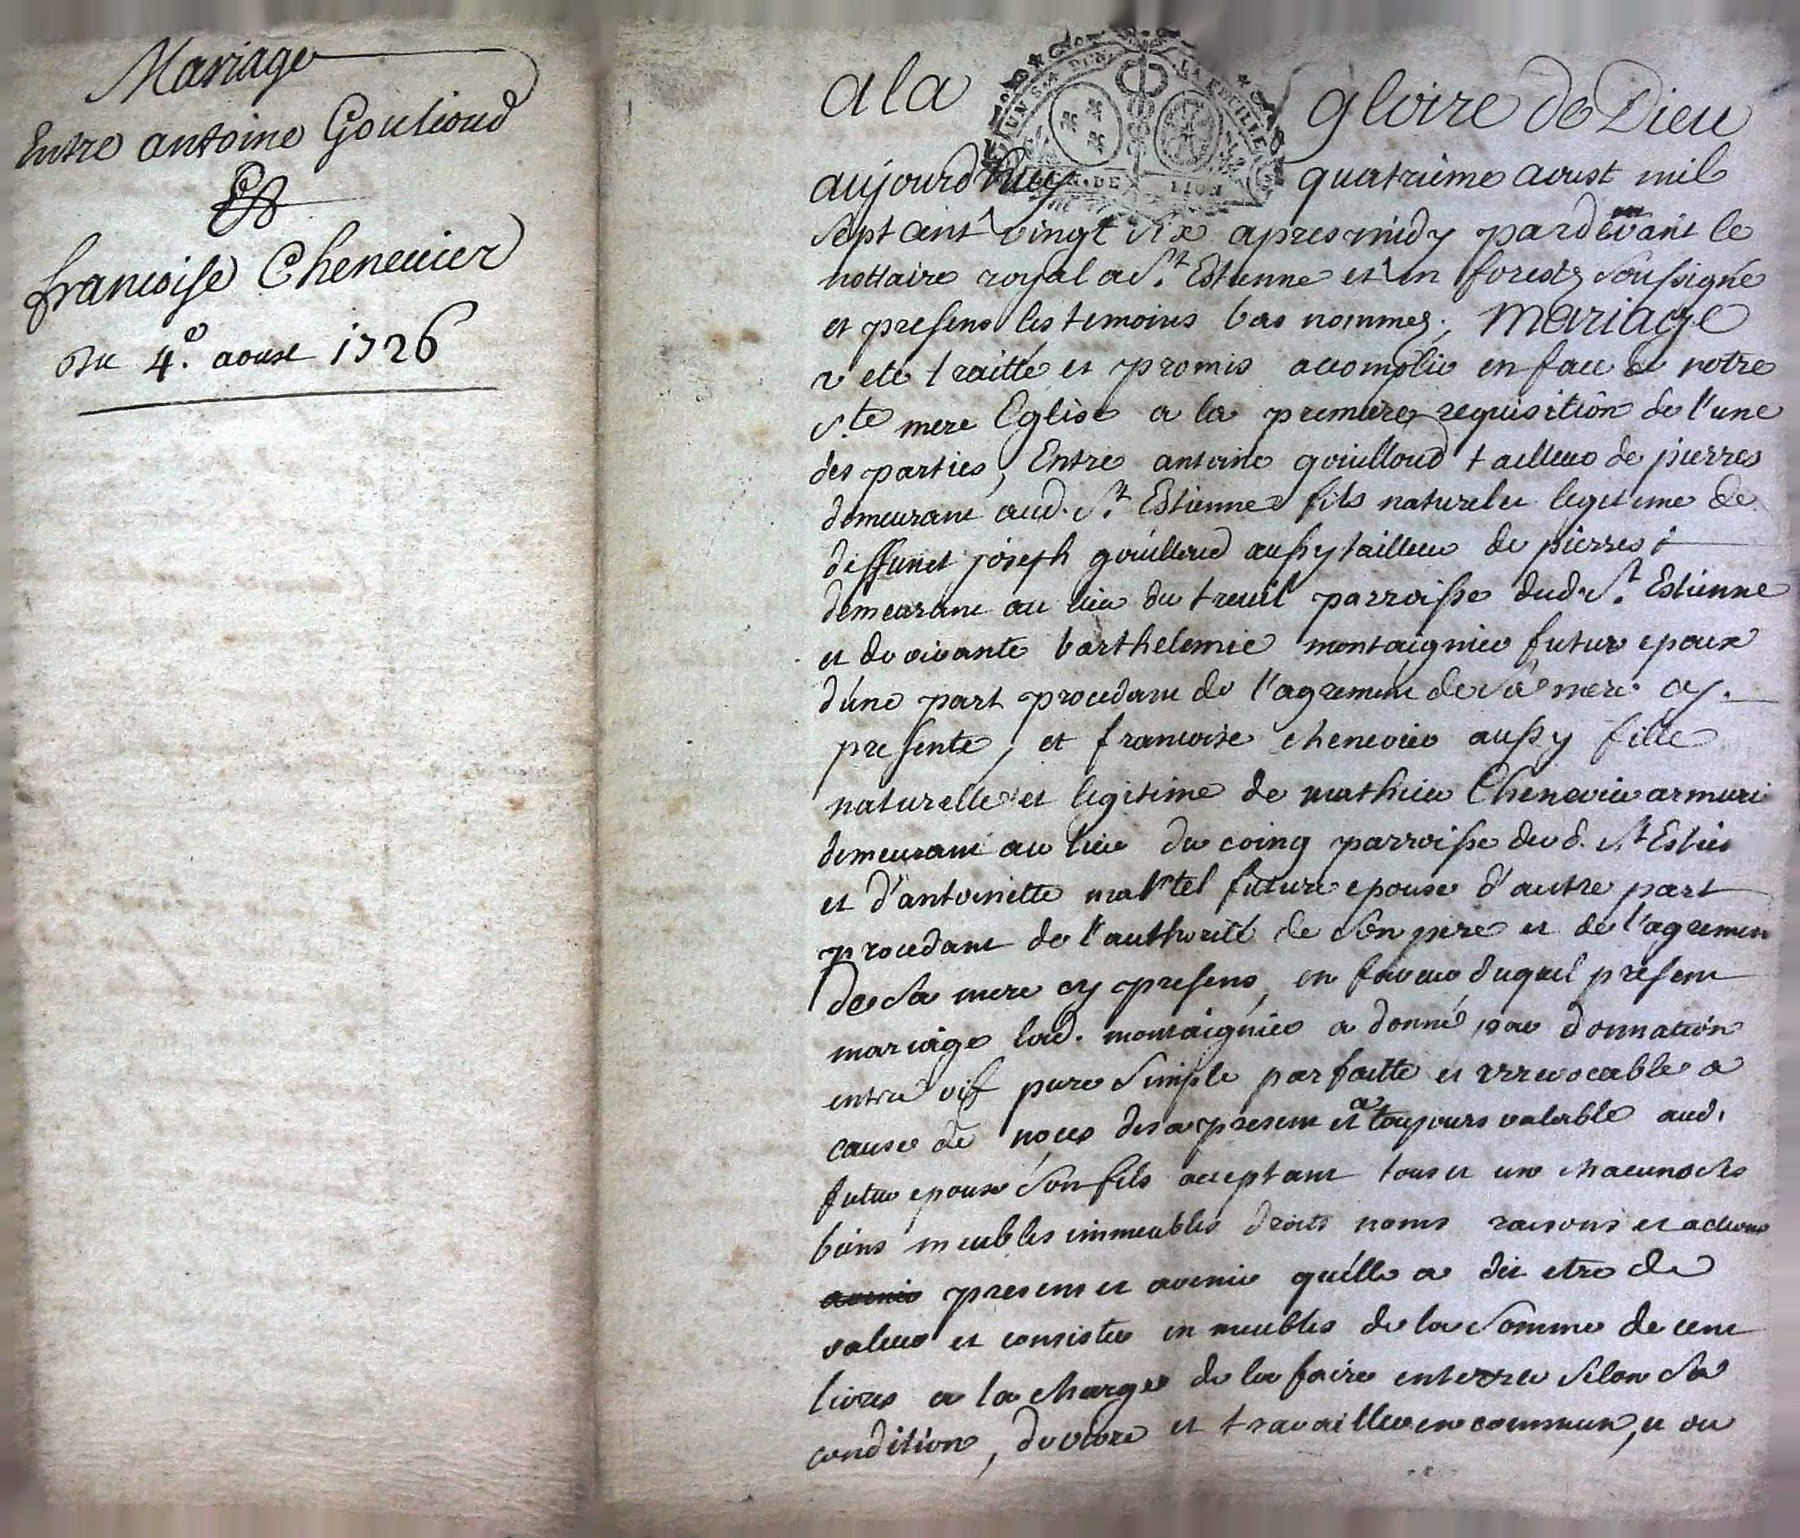 Mariage
Entre antoine Goulioud
Et
francoise Chenevier
Du 4.e aoust 1726
a la gloire de Dieu
aujourdhuy quatrieme aoust mil
sept cent vingt six apres midy pardevant le
nottaire royal a St. Estienne et en forestz soussigné
et presens les temoins bas nommez, mariage
a eté traitté et promis accomplir en face de notre
ste. mere Eglise a la premiere requisition de l'une
des parties, Entre antoine gouilloud tailleur de pierres
demeurant aud. St. Estienne fils naturel et legitime de
deffunct joseph gouilloud aussy tailleur de pierres
demeurant au lieu du treuil parroisse dud. St. Estienne
et de vivante barthelemie montaignier futur epoux
d'une part procedant de l'agrement de sa mere cy
presente, et francoise chenevier aussy fille
naturelle et legitime de mathieu Chenevier armuri
demeurant au lieu du coing parroisse dud. St Estien
et d'antoinette martel future epouse d'autre part
procedant de l'authorité de son pere et de l'agremen
de sa mere cy presens, en faveur duquel present
mariage lad. montaignier a donné par donnation
entre vif pure simple parfaitte et irrevocable a
cause de noces des a present et a toujours valable aud.
futur epoux son fils acceptant tous et un chacuns ses
biens meubles immeubles droits noms raisons et actions
avenir presens et avenir qu'elle a dit etre de
valeur et consister en meubles de la somme de cent
livres a la charge de la faire enterrer selon sa
condition, de vivre et travailler en commun, et ou